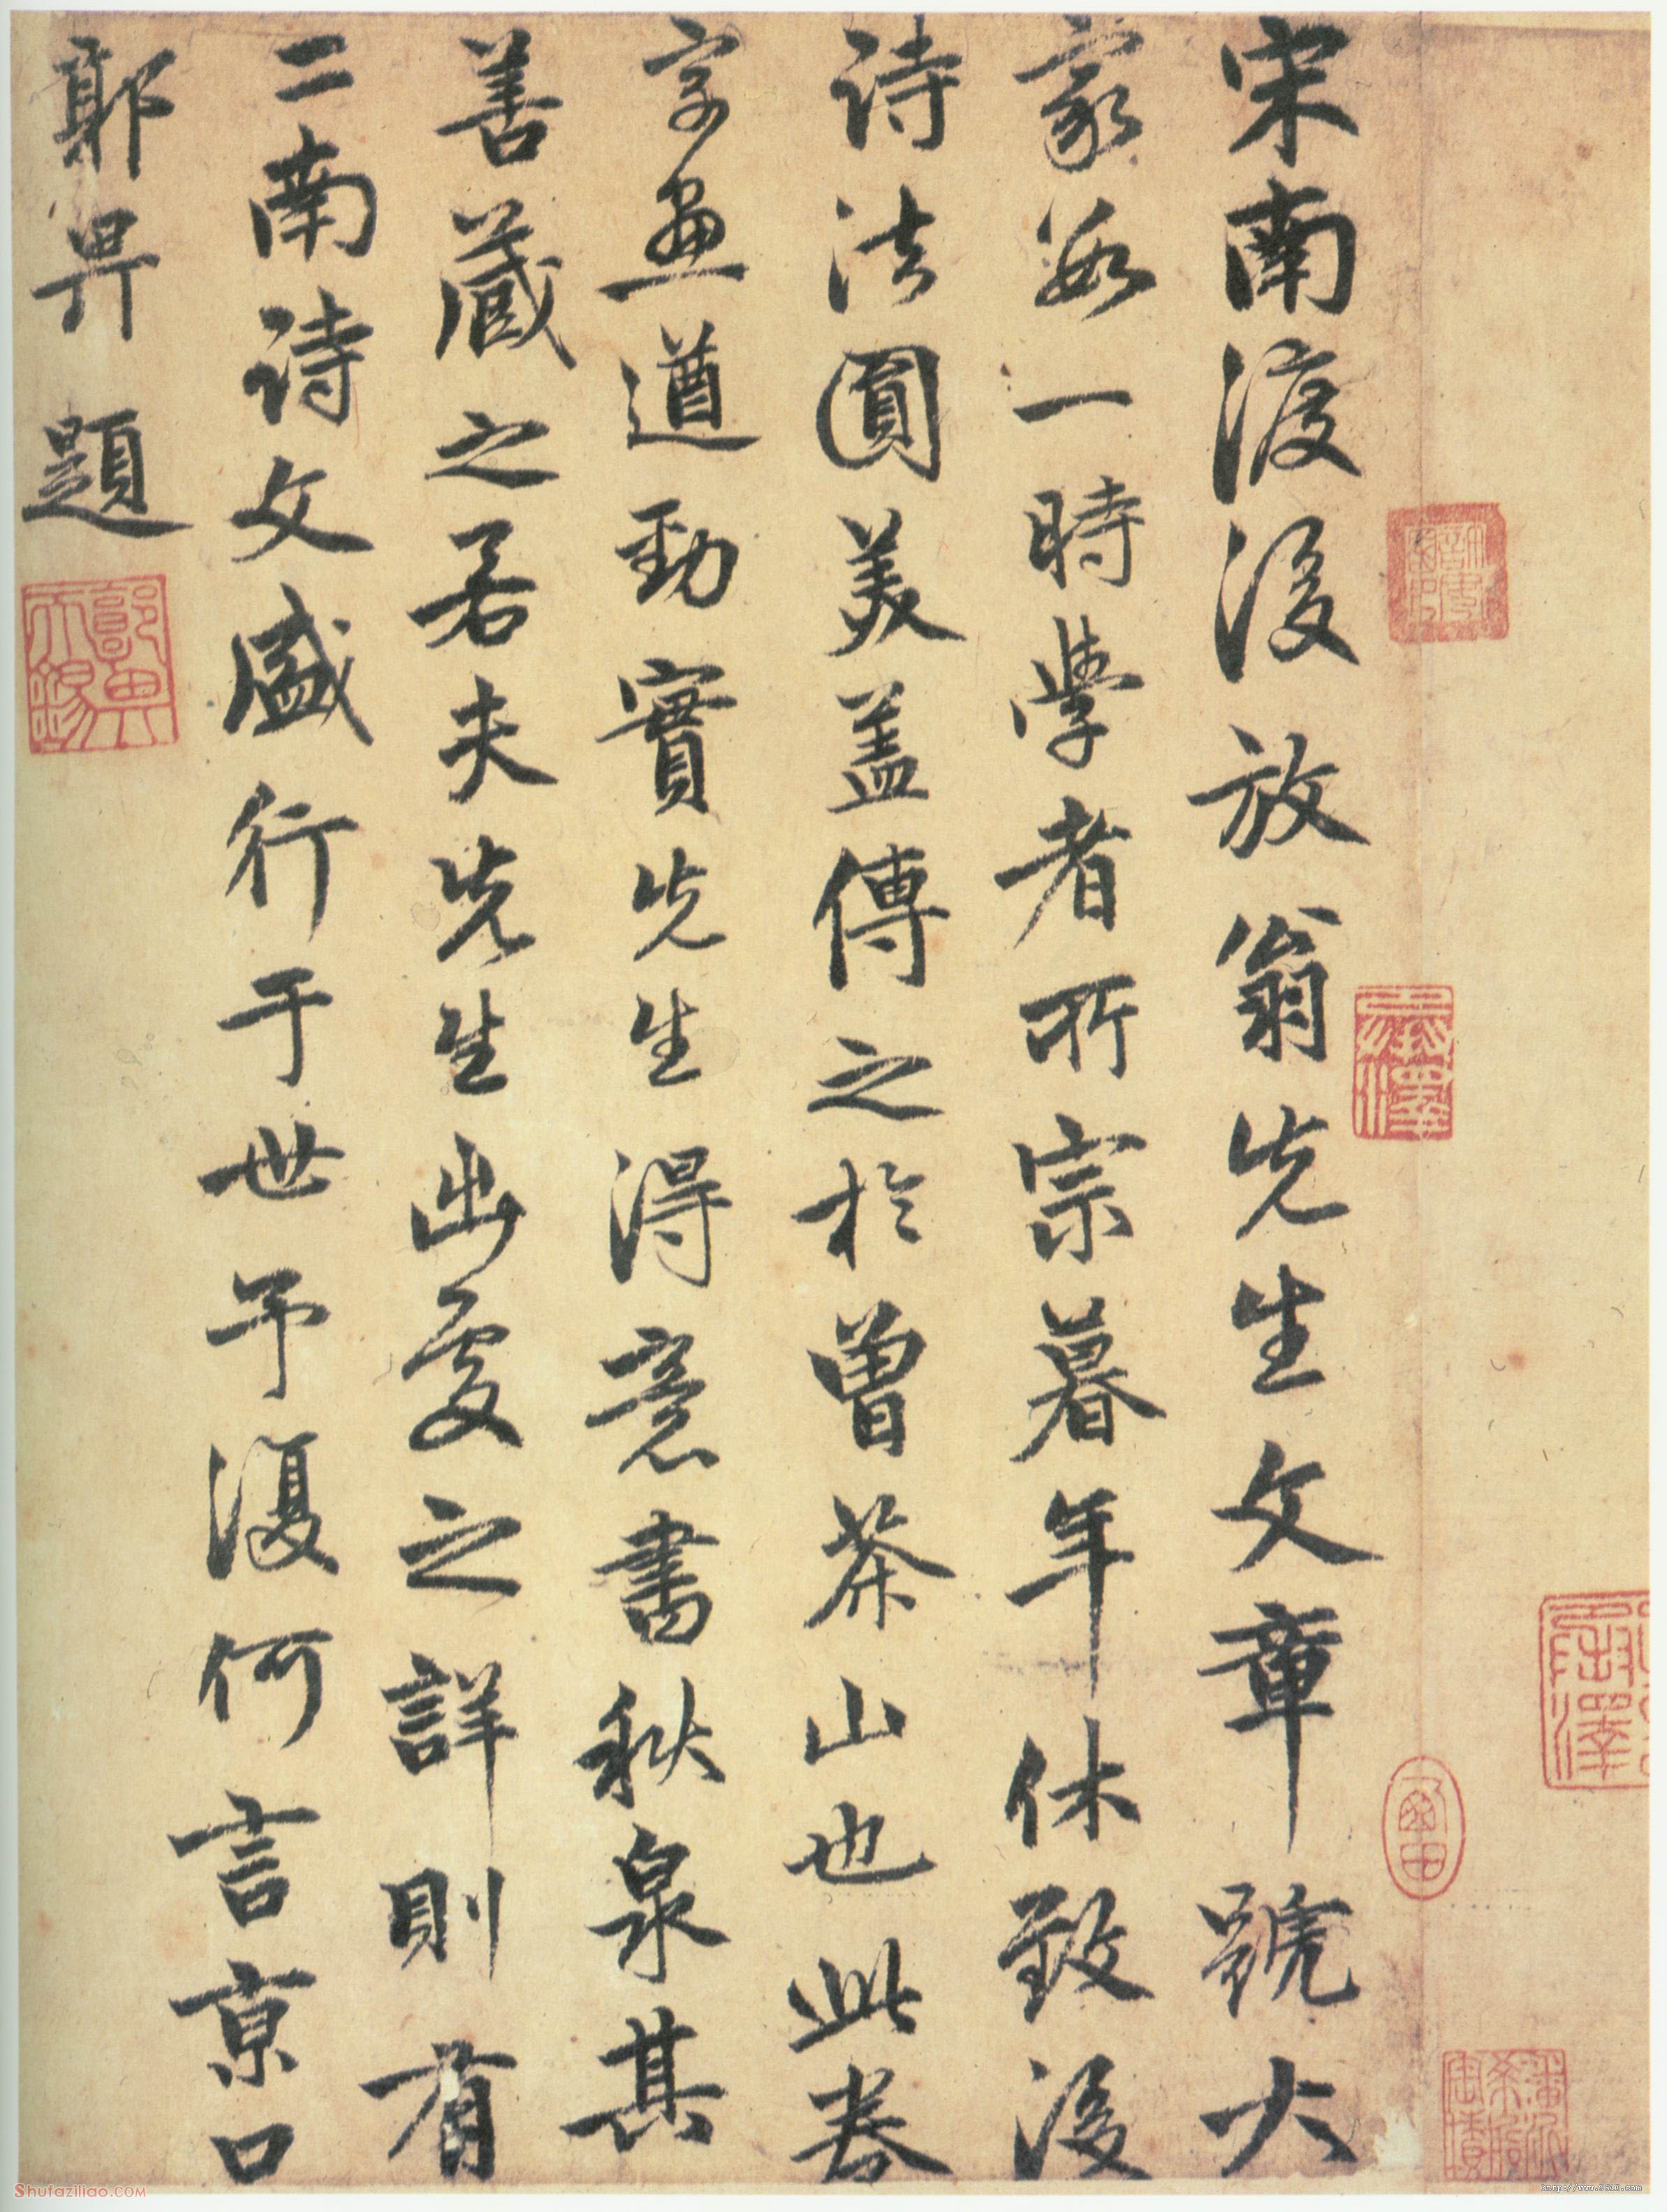 宋南渡後放翁先生文章號大
家數一時學者所宗暮年休致後
詩法圓美盖傳之於曾茶山也此卷
字畫遒勁實先生得意書秋泉其
善藏之若夫先生出處之詳則有
二南詩文盛行于世予復何言京口
郭畀題
郭畀天錫
Shufaziliao.COM